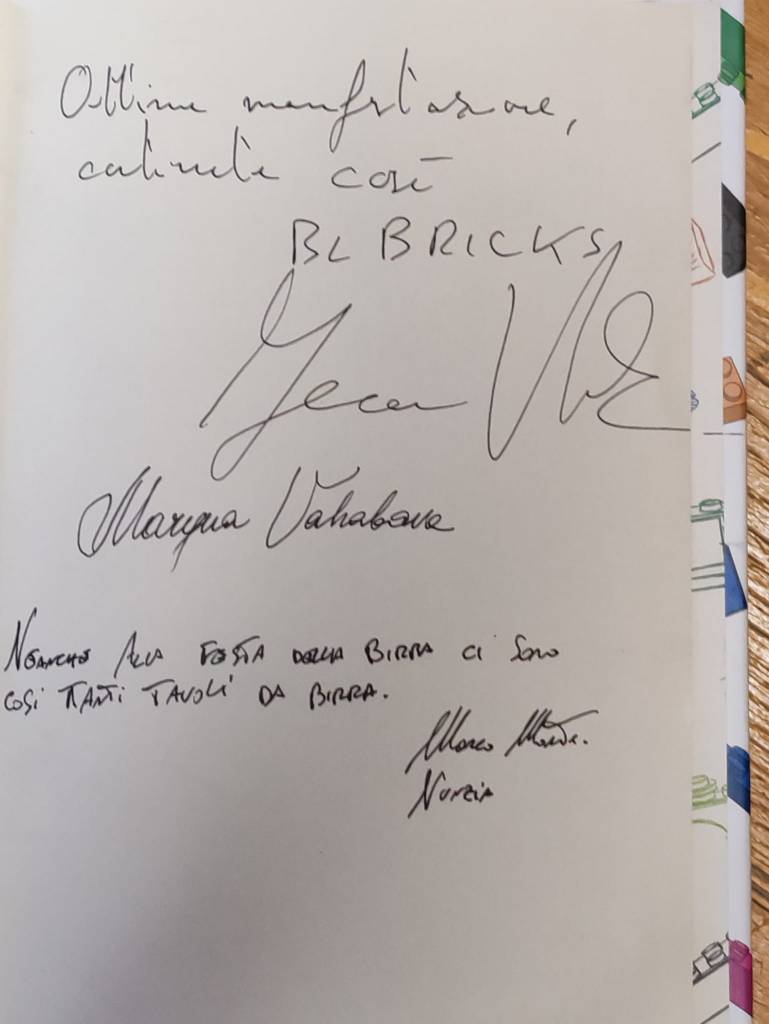 Ottima manifestazione,
continuate così
BL BRICKS
Maryna Vahabava
NEANCHE ALLA FESTA DELLA BIRRA CI SONO
COSÌ TANTI TAVOLI DA BIRRA.
Marco
NUNZIA